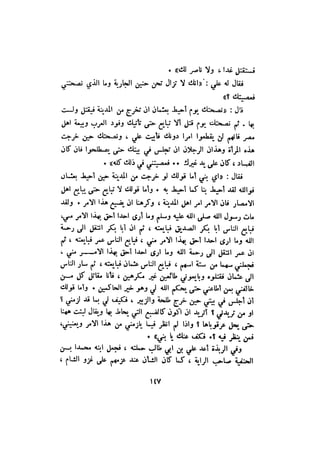 فستقتل غدا ، ولا ناصر لك» .
فقال له علي : «انك لا تزال تحن حنين الجارية وما الذي نصحتني
فعصيتك ؟»
قال : «نصحتك يوم أحيط بعثمان ان تخرج من المدينة فيقتل ولست
بها . ثم نصحتك يوم قتل ألا تبايع حتى تأتيك وفود العرب وبيعة اهل
مصر فانهم لن يقطعوا امرا دونك فأبيت علي ، ونصحتك حين خرجت
هذه المرأة وهذان الرجلان ان تجلس في بيتك حتى يصطلحوا فان كان
الفساد ، كان على يد غيرك .. فعصيتني في ذلك كله» .
فقال : «اي بني أما قولك لو خرجت من المدينة حين أحيط بعثمان
فوالله لقد أحيط بنا كما أحيط به . وأما قولك لا تبايع حتى يبايع اهل
الامصار فان الامر امر اهل المدينة ، وكرهنا ان يضيع هذا الامر . ولقد
مات رسول الله صلى الله عليه وسلم وما أرى احدا أحق بهذا الامر مني،
فبايع الناس أبا بكر الصديق فبايعته ، ثم ان أبا بكر انتقل الى رحمة
الله وما ارى احدا أحق بهذا الامر مني ، فبايع الناس عمر فبايعته ، ثم
ان عمر انتقل الى رحمة الله وما ارى احدا أحق بهذا الامر مني ،
فجعلني سهما من ستة اسهم ، فبايع الناس عثمان فبايعته ، ثم سار الناس
الى عثمان فقتلوه وبايعوني طائعين غير مكرهين ، فأنا مقاتل كل مـن
خالفني بمن أطاعني حتى يحكم الله لي وهو خير الحاكمين . وأما قولك
أن أجلس في بيتي حين خرج طلحة والزبير ، فكيف لي بما قد لزمني ؟
او من تريدني ؟ أتريد ان اكون كالضبع التي يحاط بها ويقال ليست ههنا
حتى يحل عرقوباها ؟ واذا لم انظر فيما يلزمني من هذا الامر ويعنيني،
فمن ينظر فيه ؟. فكف عنك يا بني» .
وفي الربذة أعد علي بن ابي طالب حملته ، فجعل ابنه محمدا بـن
الحنفية صاحب الراية ، كما كان الشأن عند عزمهم على غزو الشام ،
١٤٧